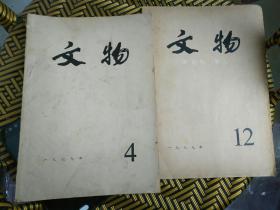 文物
一九七七年
4
文物
一九七七年
12